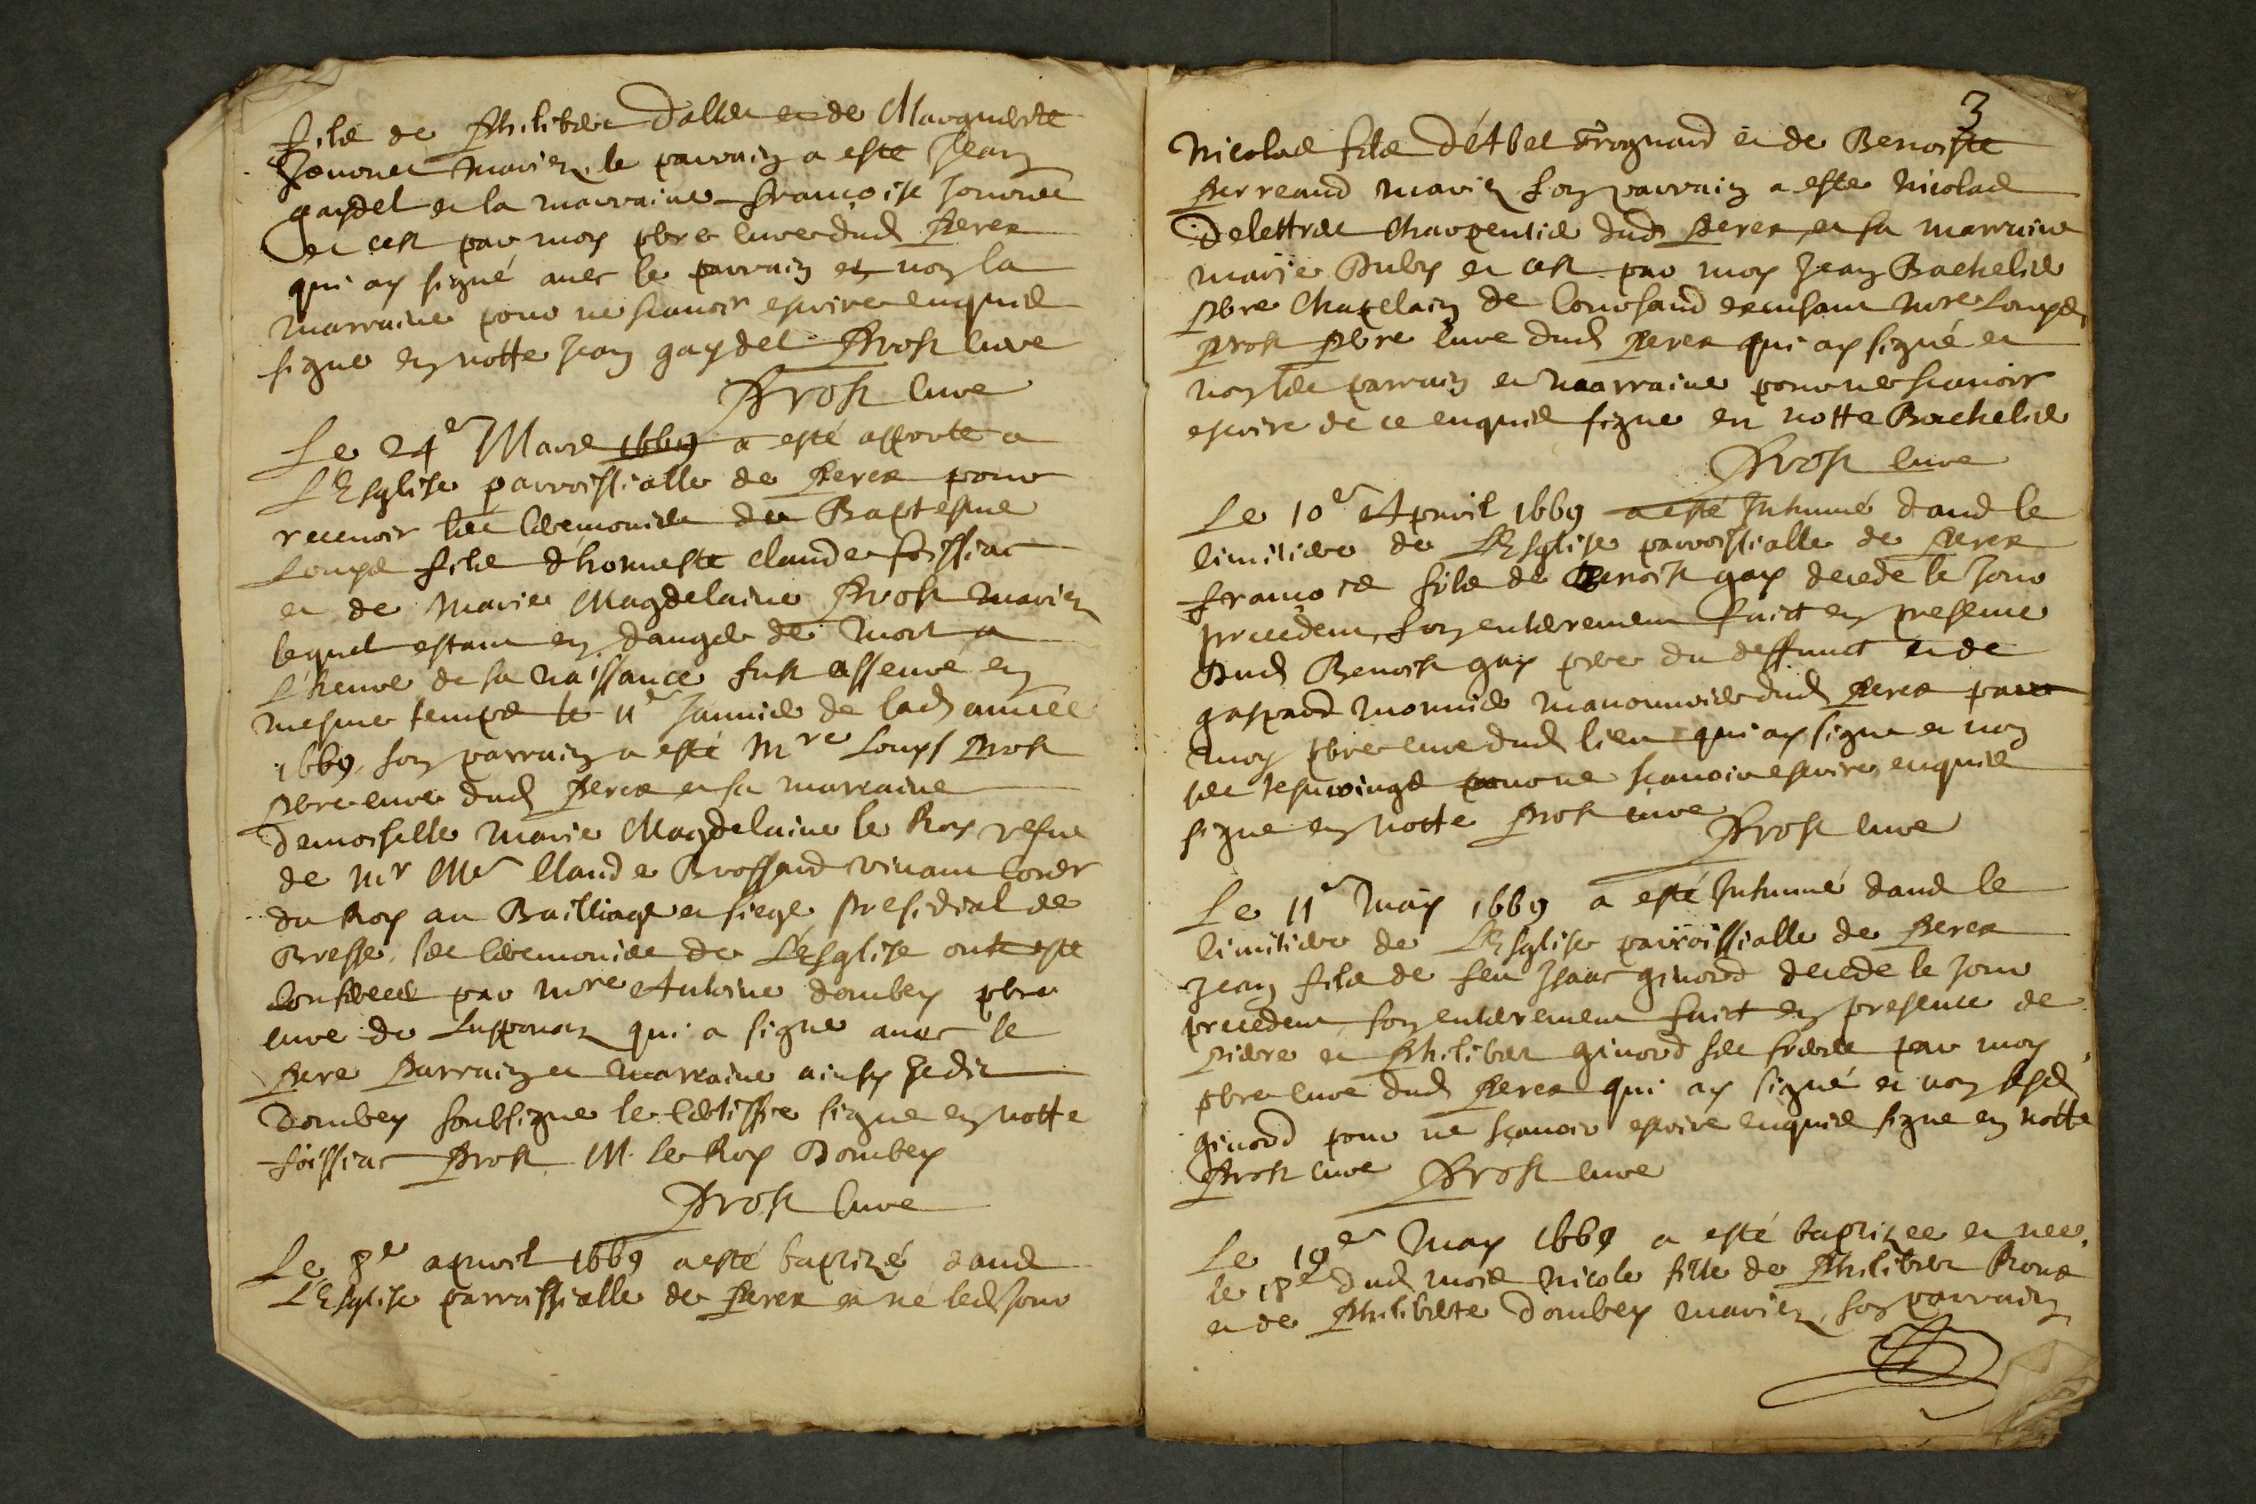 fils de Philibert Dallet et de Marguerite
Jouvnet mariez, le parrain a esté Jean
gaydel et la marraine Françoise Jouvnet
et cest par moy pbre curé dud Perex
qui ay signé avec le parrain et non la
marraine pour ne scavoir escrire enquis
signe en notte Jean gaydel Prost curé
Prost curé
Le 24e Mars 1669 a esté apporté a
L'Esglise parroissialle de Perex pour
recevoir les ceremonies du Baptesme
Louys fils d'honneste claude foissiac
et de Marie Magdelaine Prost mariez
lequel estant en danger de mort a
l'heure de sa naissance fust asseuré en
mesme temps le 11e Janvier de lad année
1669, son parrain a esté Mre Louys Prost
pbre curé dud Perex et sa marraine
demoiselle Marie Magdelaine le Roy vefve
de Mr Me Claude Brossard vivant Coner
du Roy au Bailliage et siege presidial de
Bresse, les ceremonies de L'Esglise ont esté
conferées par Mre Antoine dombey pbre
curé de Lusponaz qui a signé avec le
Pere Parrain et marraine ainsy je dit
Dombey soubsigné le certiffie signe en notte
foissiac Prost M. le Roy Dombey
Prost curé
Le 8e apvril 1669 a esté baptizé dans
L'Esglise parroissialle de Perex et né led jour
3
Nicolas fils d'Abel Trognard et de Benoiste
Perreaud mariez son parrain a esté Nicolas
Delettrez Charpentier dud Perex, et sa marraine
marie Duby et cest par moy Jean Bachelier
pbre Chapelain de Confsand excusant Mre Louys
Prost Pbre curé dud Perex qui ay signé et
non les parrain et marraine pour ne scavoir
escrire de ce enquis signe en notte Bachelier
Prost curé
Le 10e Apvril 1669 a esté Inhumé dans le
cimitiere de L'Esglise parroissialle de Perex
François fils de Benoist gay decedé le jour
precedent, son enterrement faict en presence
Dud Benoist gay pere du deffunct et de
gaspard monnier manouvrier dud Perex par
moy pbre curé dud lieu qui ay signé et non
les tesmoings pour ne sçavoir escrire, enquis
signe en notte Prost curé
Prost curé
Le 11e May 1669 a esté Inhumé dans le
cimitiere de L'Esglise parroissialle de Perex
Jean fils de feu Isaac givord decedé le jour
precedent, son enterrement faict en presence de
Pierre et Philibert givord ses freres par moy
pbre curé dud Perex qui ay signé et non lesd
givord pour ne sçavoir escrire enquis signe en notte
Prost curé Prost curé
Le 19e May 1669 a esté baptizee et nee
le 18e dud mois Nicole fille de Philibert Roux
et de Philiberte Dombey mariez, son parrain